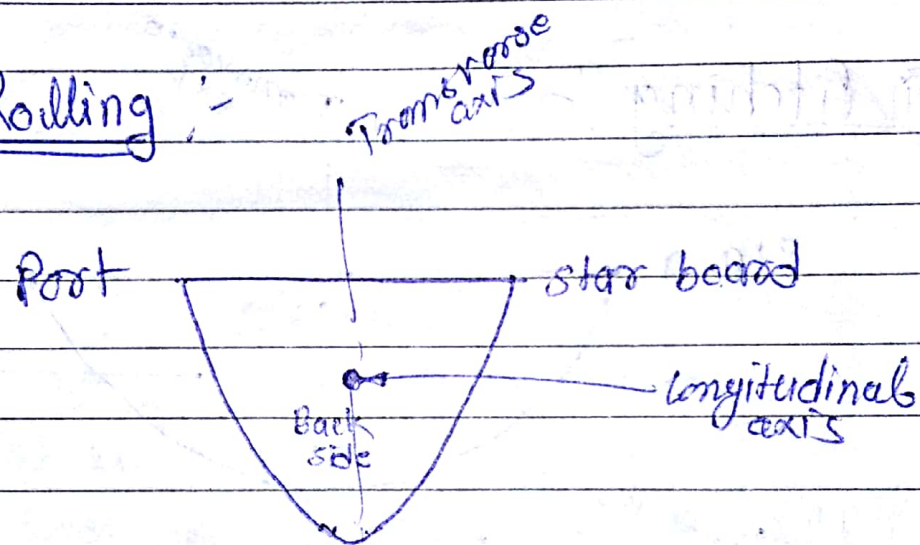 Rolling :-
Transverse
axis
Port
star board
Longitudinal
axis
Back
side